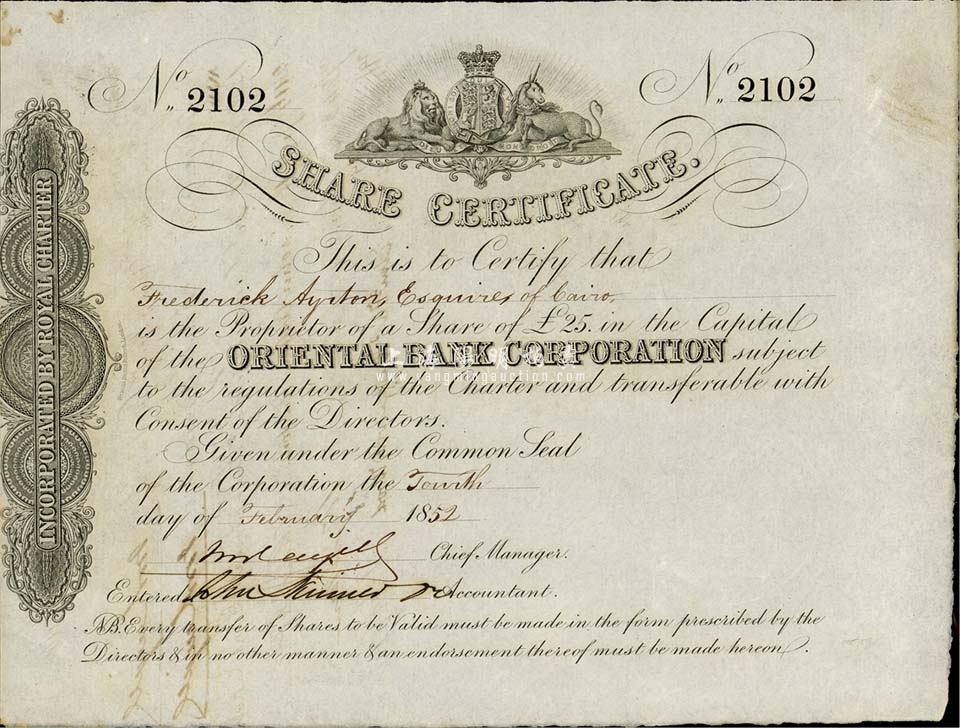 No. 2102
No. 2102
SHARE CERTIFICATE.
INCORPORATED BY ROYAL CHARTER
This is to Certify that
Frederick Ayrton, Esquire, of Cairo,
is the Proprietor of a Share of £25. in the Capital
of the ORIENTAL BANK CORPORATION subject
www.yangmingauction.com
to the regulations of the Charter and transferable with
Consent of the Directors.
Given under the Common Seal
of the Corporation the Fourth
day of February 1852
Chief Manager.
Entered John Skinner Accountant.
NB. Every transfer of Shares to be Valid must be made in the form prescribed by the
Directors & in no other manner & an endorsement thereof must be made hereon.